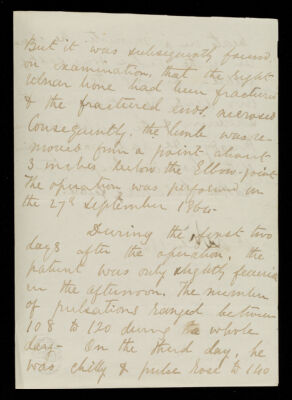 But it was subsequently found
on examination, that the right
Ulnar bone had been fractured
& the fractured ends necrosed
Consequently, the limb was re-
moved from a point about
3 inches below the Elbow-joint
The operation was performed on
the 27th September 1864.
During the first two
days after the operation, the
patient was only slightly feverish
in the afternoon. The number
of pulsations ranged between
108 to 120 during the whole
day- On the third day, he
was chilly & pulse rose to 140